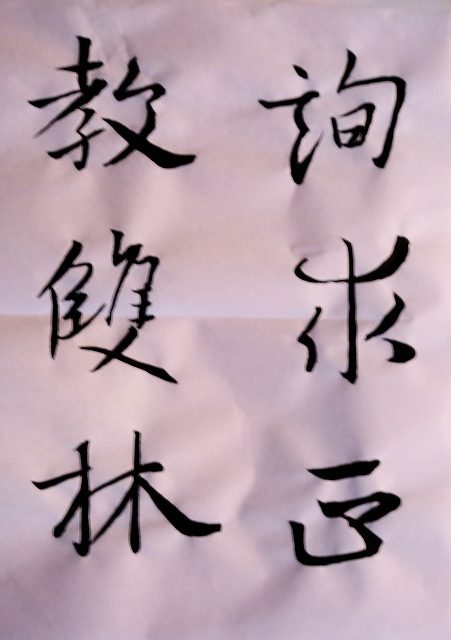 詢求正
教雙林